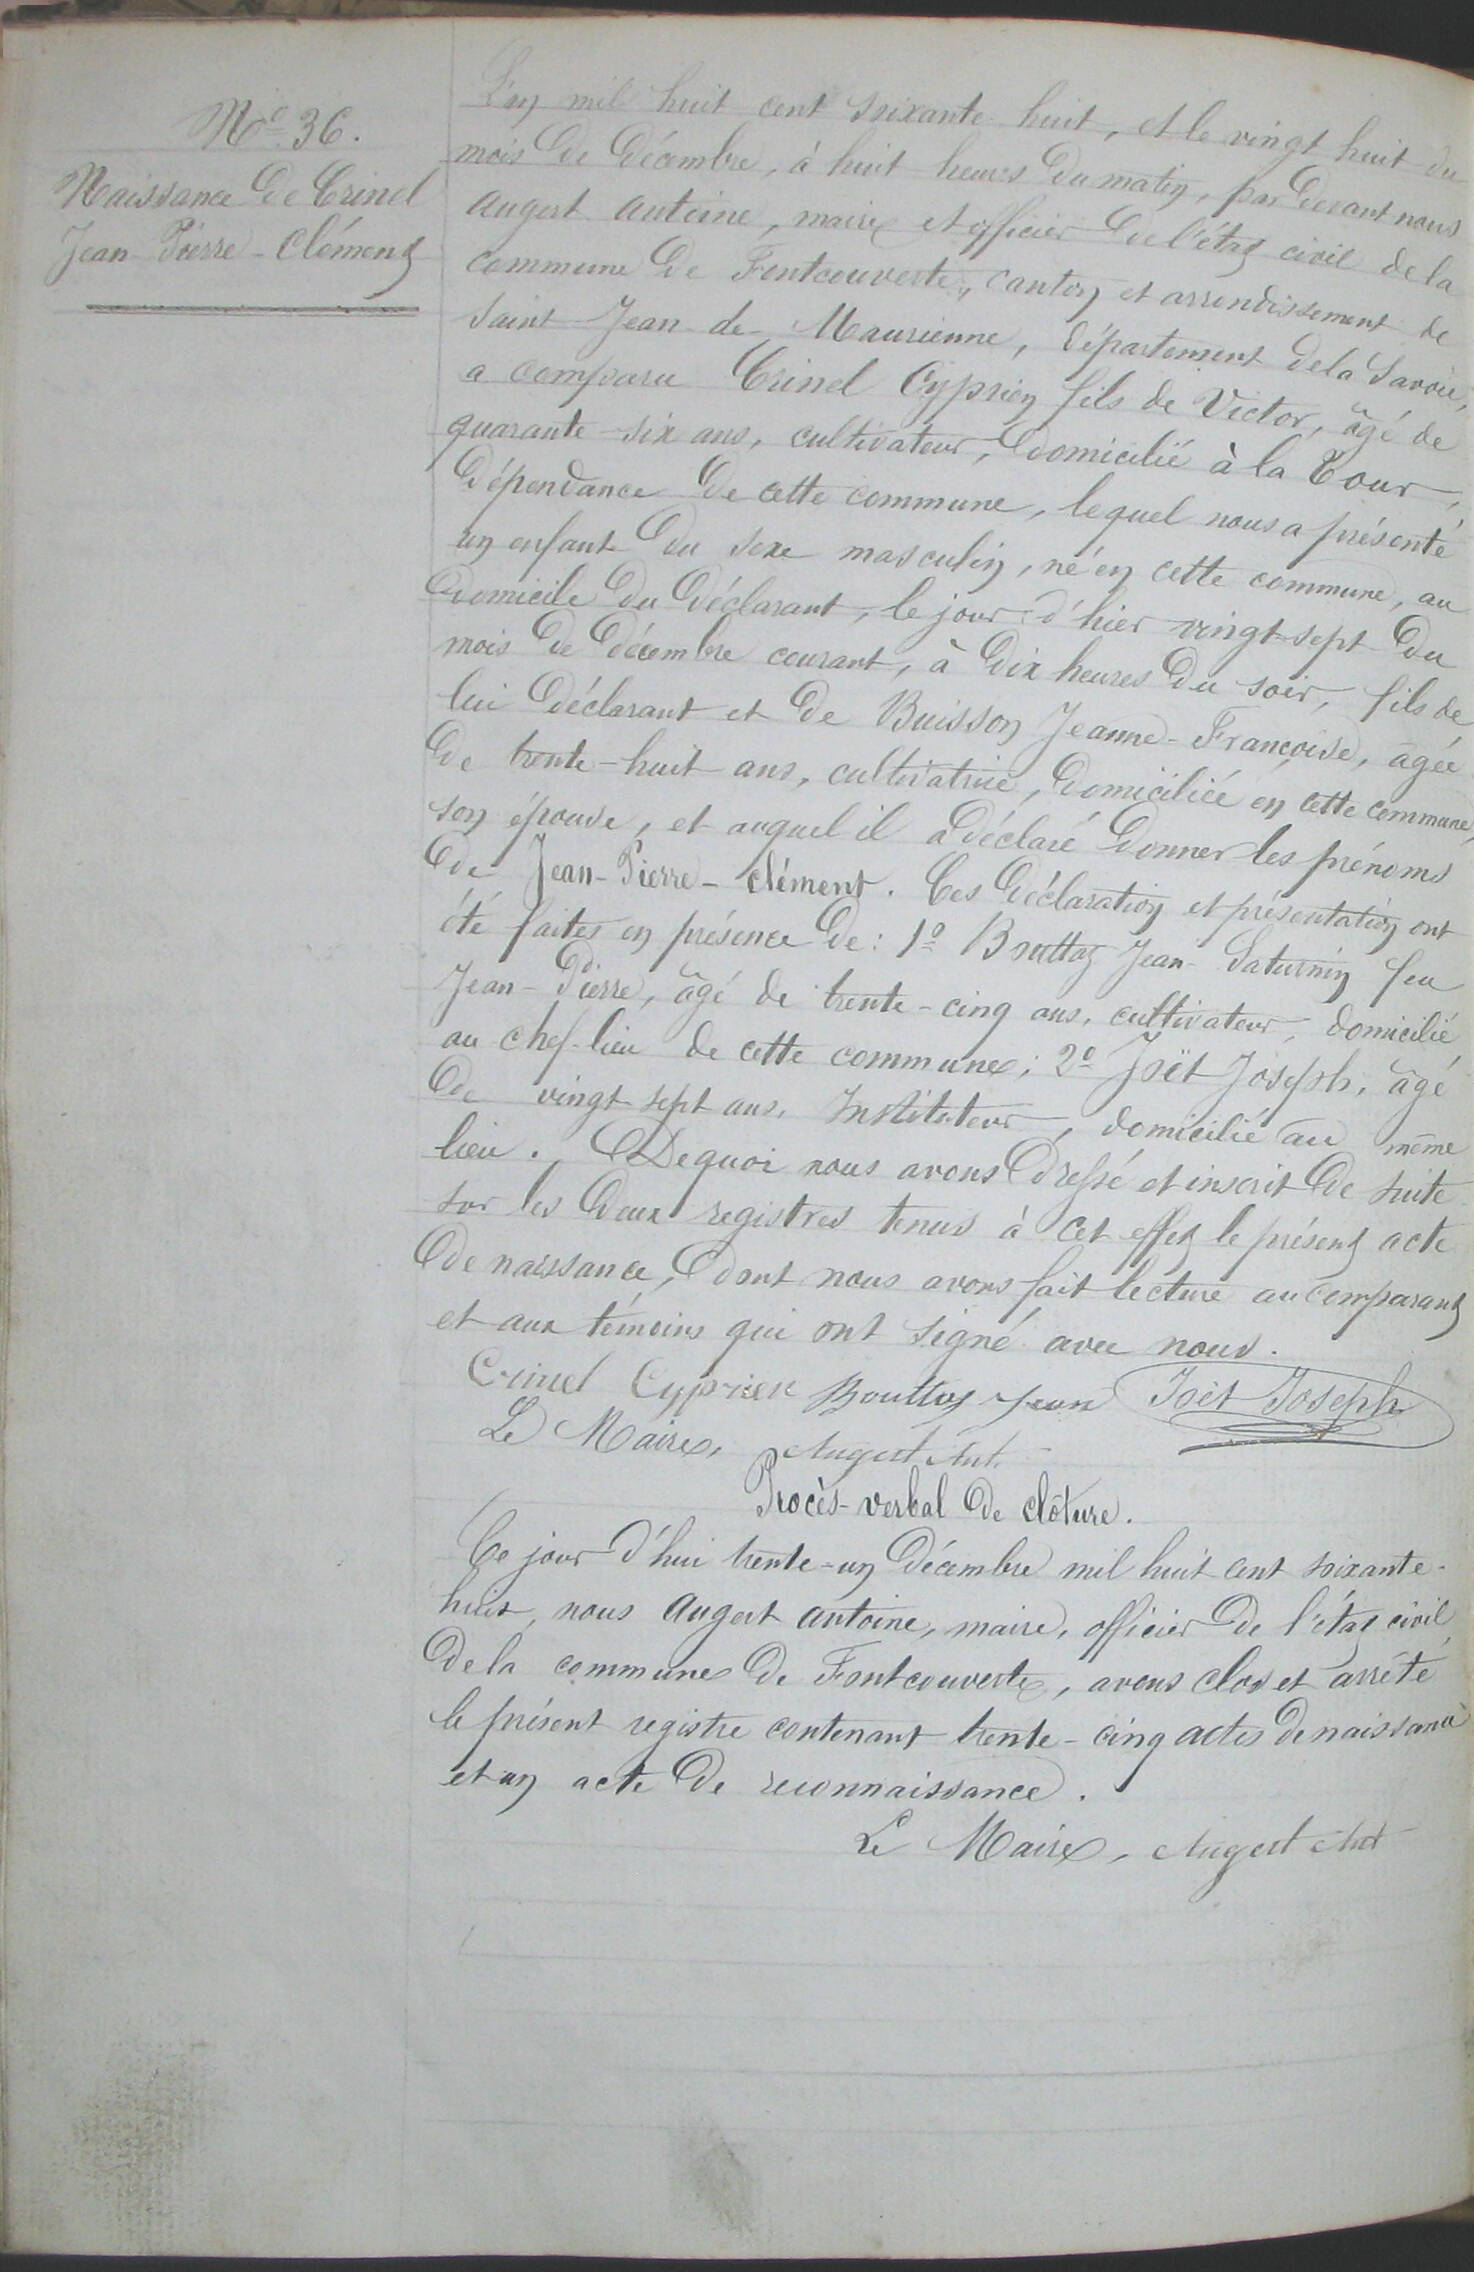 N° 36.
Naissance de Crinel
Jean-Pierre-Clément
L'an mil huit cent soixante huit, et le vingt huit du
mois de décembre, à huit heures du matin, par devant nous
Augert Antoine, maire et officier de l'état civil de la
commune de Fontcouverte, canton et arrondissement de
Saint Jean-de-Maurienne, département de la Savoie,
a comparu Crinel Cyprien fils de Victor, âgé de
quarante-six ans, cultivateur, domicilié à la Tour,
dépendance de cette commune, lequel nous a présenté
un enfant du sexe masculin, né en cette commune, au
domicile du déclarant, le jour d'hier vingt-sept du
mois de décembre courant, à dix heures du soir, fils de
lui déclarant et de Buisson Jeanne-Françoise, âgée
de trente-huit ans, cultivatrice, domiciliée en cette commune,
son épouse, et auquel il a déclaré donner les prénoms
de Jean-Pierre-Clément. Ces déclaration et présentation ont
été faites en présence de: 1° Bouttaz Jean-Saturnin feu
Jean-Pierre, âgé de trente-cinq ans, cultivateur, domicilié
au chef-lieu de cette commune; 2° Joët Joseph, âgé
de vingt sept ans, Instituteur, domicilié au même
lieu. De quoi nous avons dressé et inscrit de suite
sur les deux registres tenus à cet effet le présent acte
de naissance, dont nous avons fait lecture au comparant
et aux témoins qui ont signé avec nous.
Crinel Cyprien Bouttaz Jean Joët Joseph
Le Maire, Augert Ant.
Procès-verbal de clôture.
Ce jour d'hui trente-un décembre mil huit cent soixante-
huit, nous Augert Antoine, maire, officier de l'état civil
de la commune de Fontcouverte, avons clos et arrêté
le présent registre contenant trente-cinq actes de naissance
et un acte de reconnaissance.
Le Maire, Augert Ant